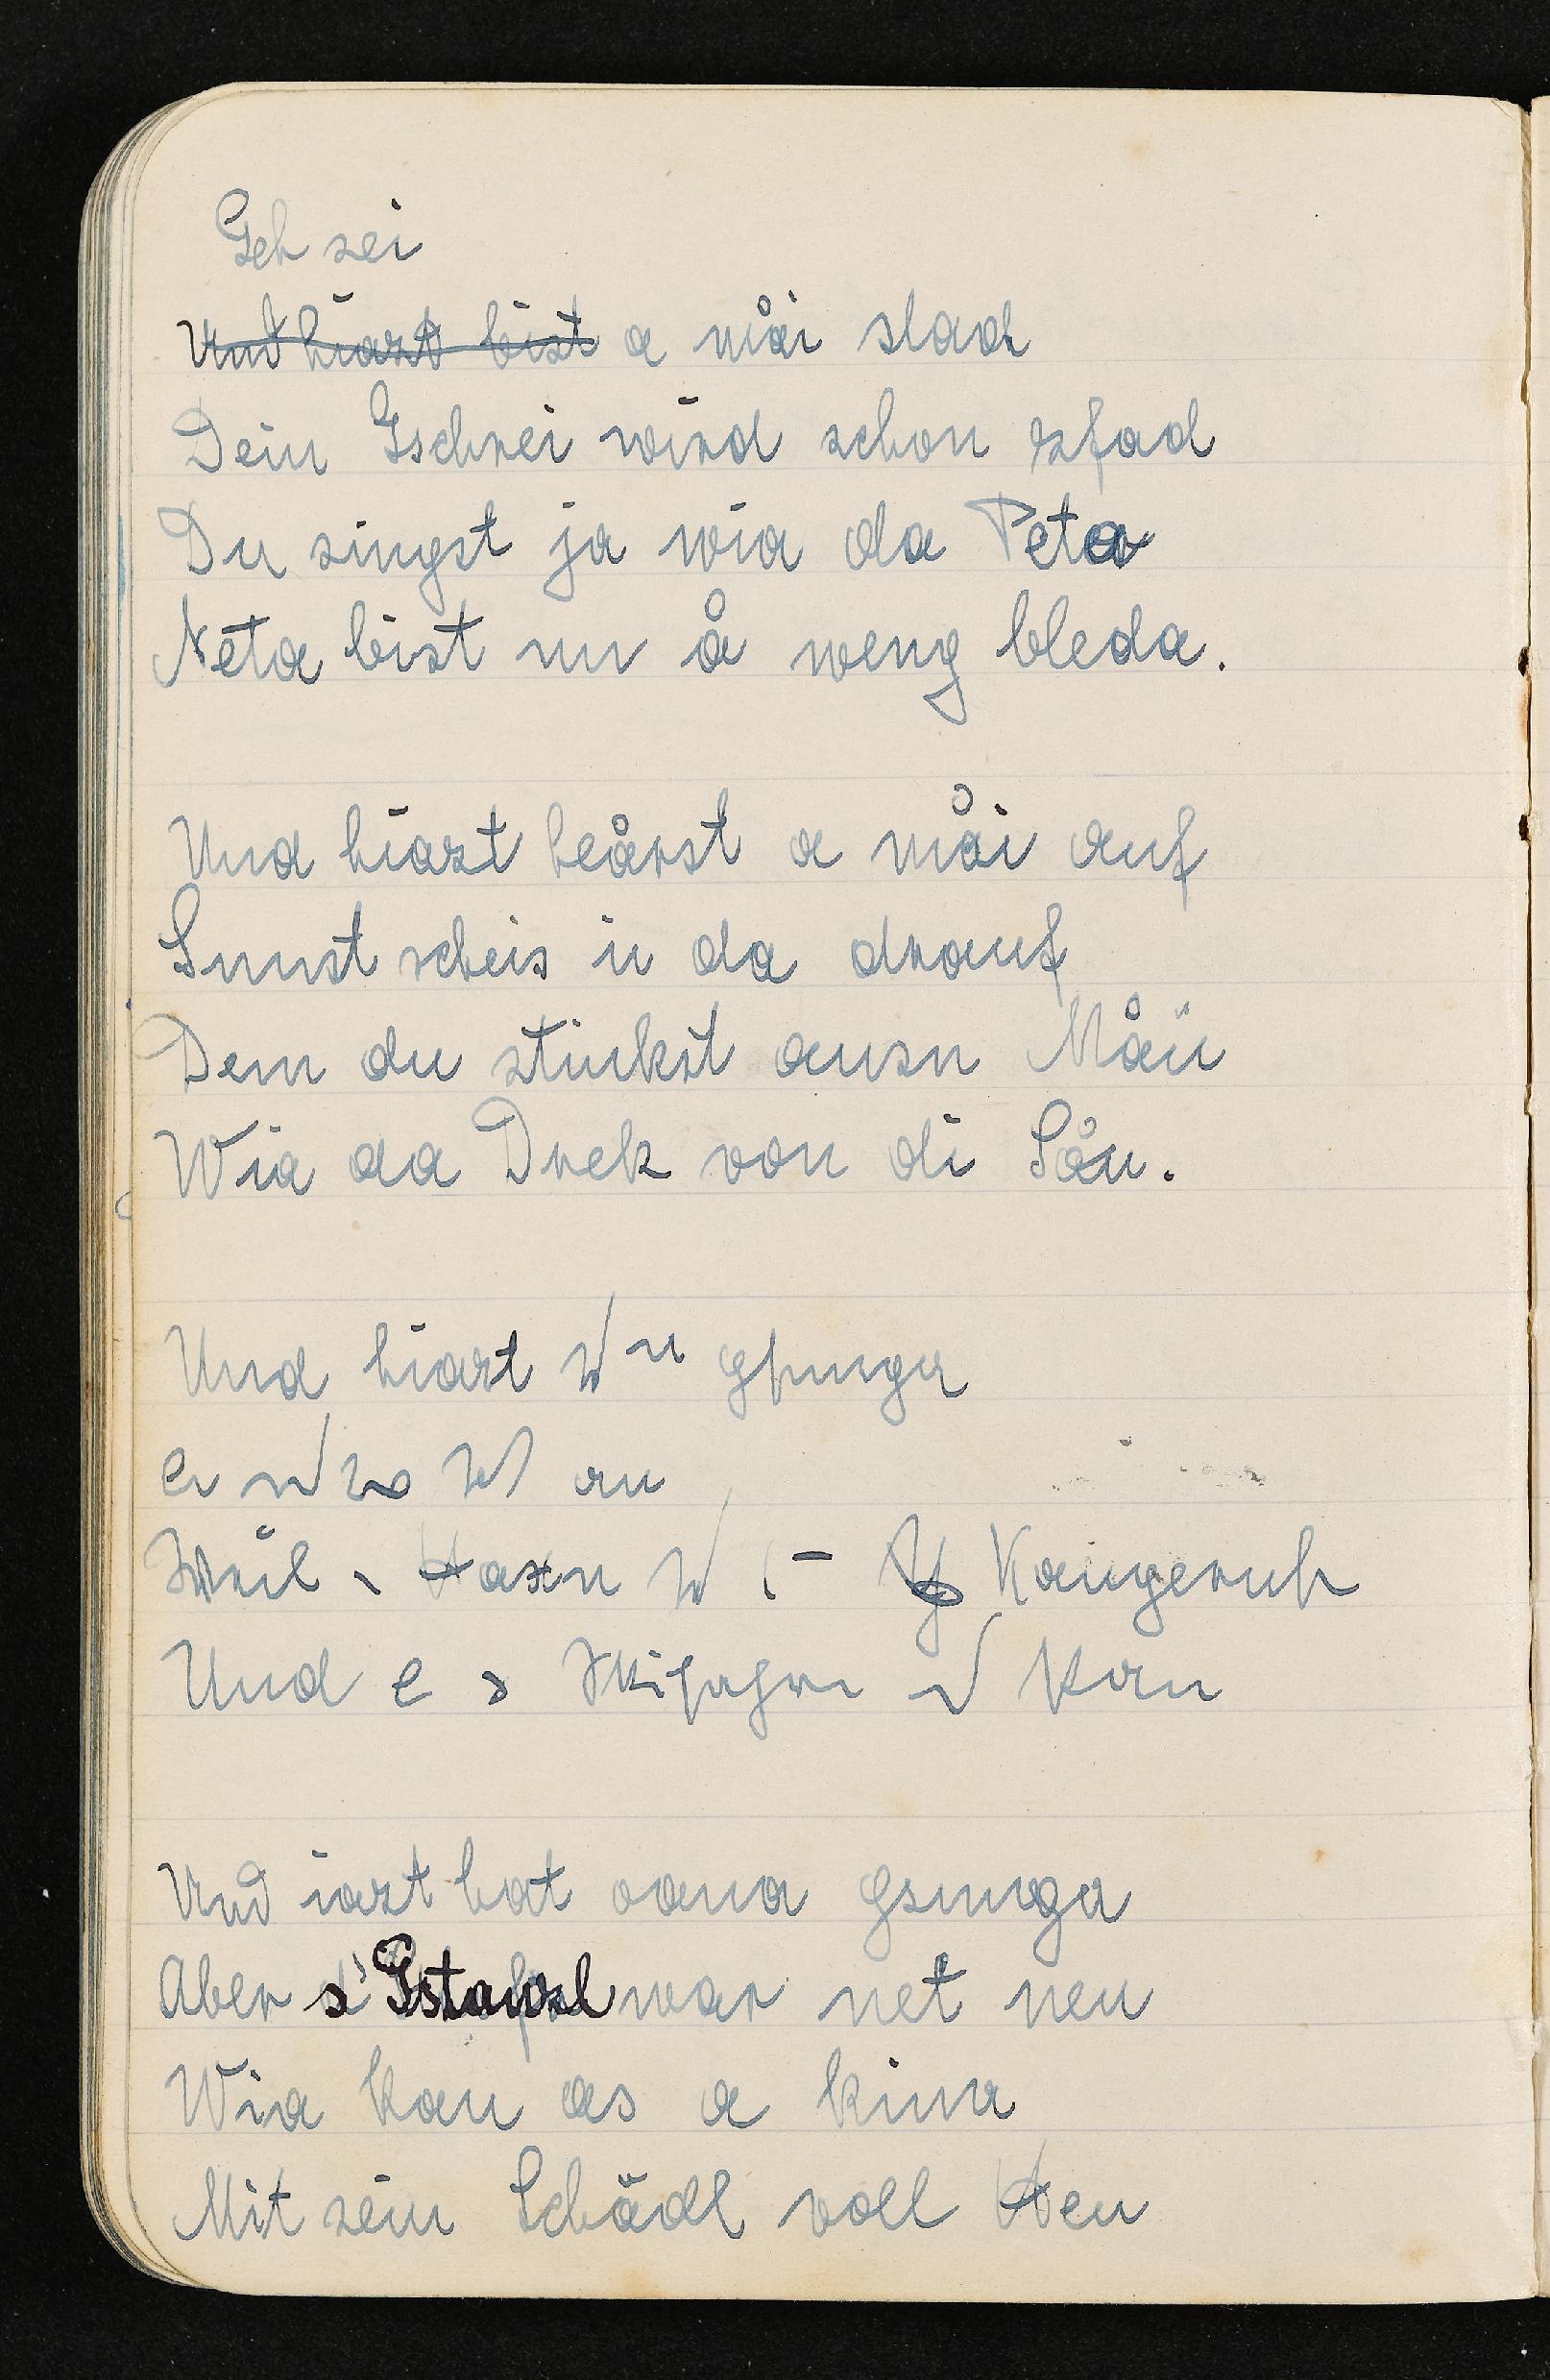 Geh sei
Und hiazt bist a måi slad
Dein Gschrei wird schon zfad
Du singst ja wia da Peta
Neta bist nu å weng bleda.
Und hiazt heårst a måi auf
Sunst scheis i da drauf
Dem du stinkst ausn Måü
Wia da Drek von di Såu.
Und hiazt gsunga
an
Weil Haxn Kangeruh
Und Skifahrn kan
Und iazt hat oana gsunga
Aber s' Gstanzl war net neu
Wia kan as a kina
Mit sein Schädl voll Heu